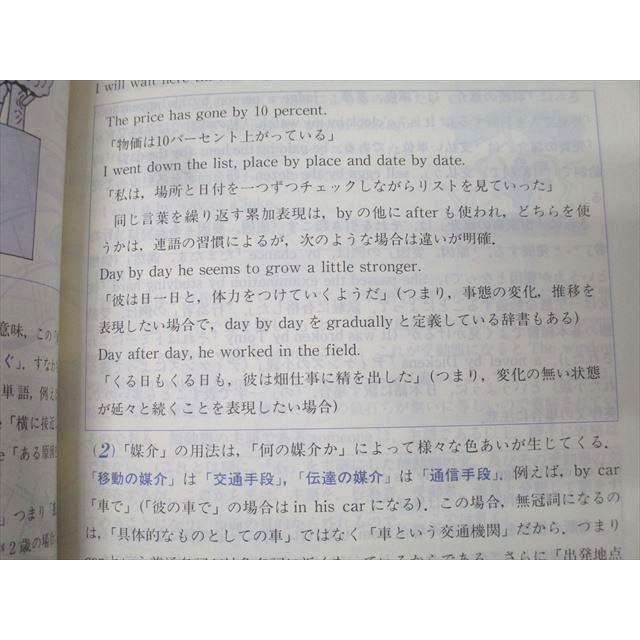 I will wait here
The price has gone by 10 percent.
「物価は10パーセント上がっている」
I went down the list, place by place and date by date.
「私は，場所と日付を一つずつチェックしながらリストを見ていった」
同じ言葉を繰り返す累加表現は，by の他に after も使われ，どちらを使
うかは，連語の習慣によるが，次のような場合は違いが明確．
Day by day he seems to grow a little stronger.
「彼は日一日と，体力をつけていくようだ」(つまり，事態の変化，推移を
表現したい場合で，day by day を gradually と定義している辞書もある)
Day after day, he worked in the field.
「くる日もくる日も，彼は畑仕事に精を出した」(つまり，変化の無い状態
が延々と続くことを表現したい場合)
(2)「媒介」の用法は，「何の媒介か」によって様々な色あいが生じてくる．
「移動の媒介」は「交通手段」，「伝達の媒介」は「通信手段」．例えば，by car
「車で」(「彼の車で」の場合は in his car になる)．この場合，無冠詞になるの
は，「具体的なものとしての車」ではなく「車という交通機関」だから．つまり
さらに「出発地点
意味，この
ぐ」．すなわ
単語，例え
「横に接近
「ある原因
つまり
2歳の場合